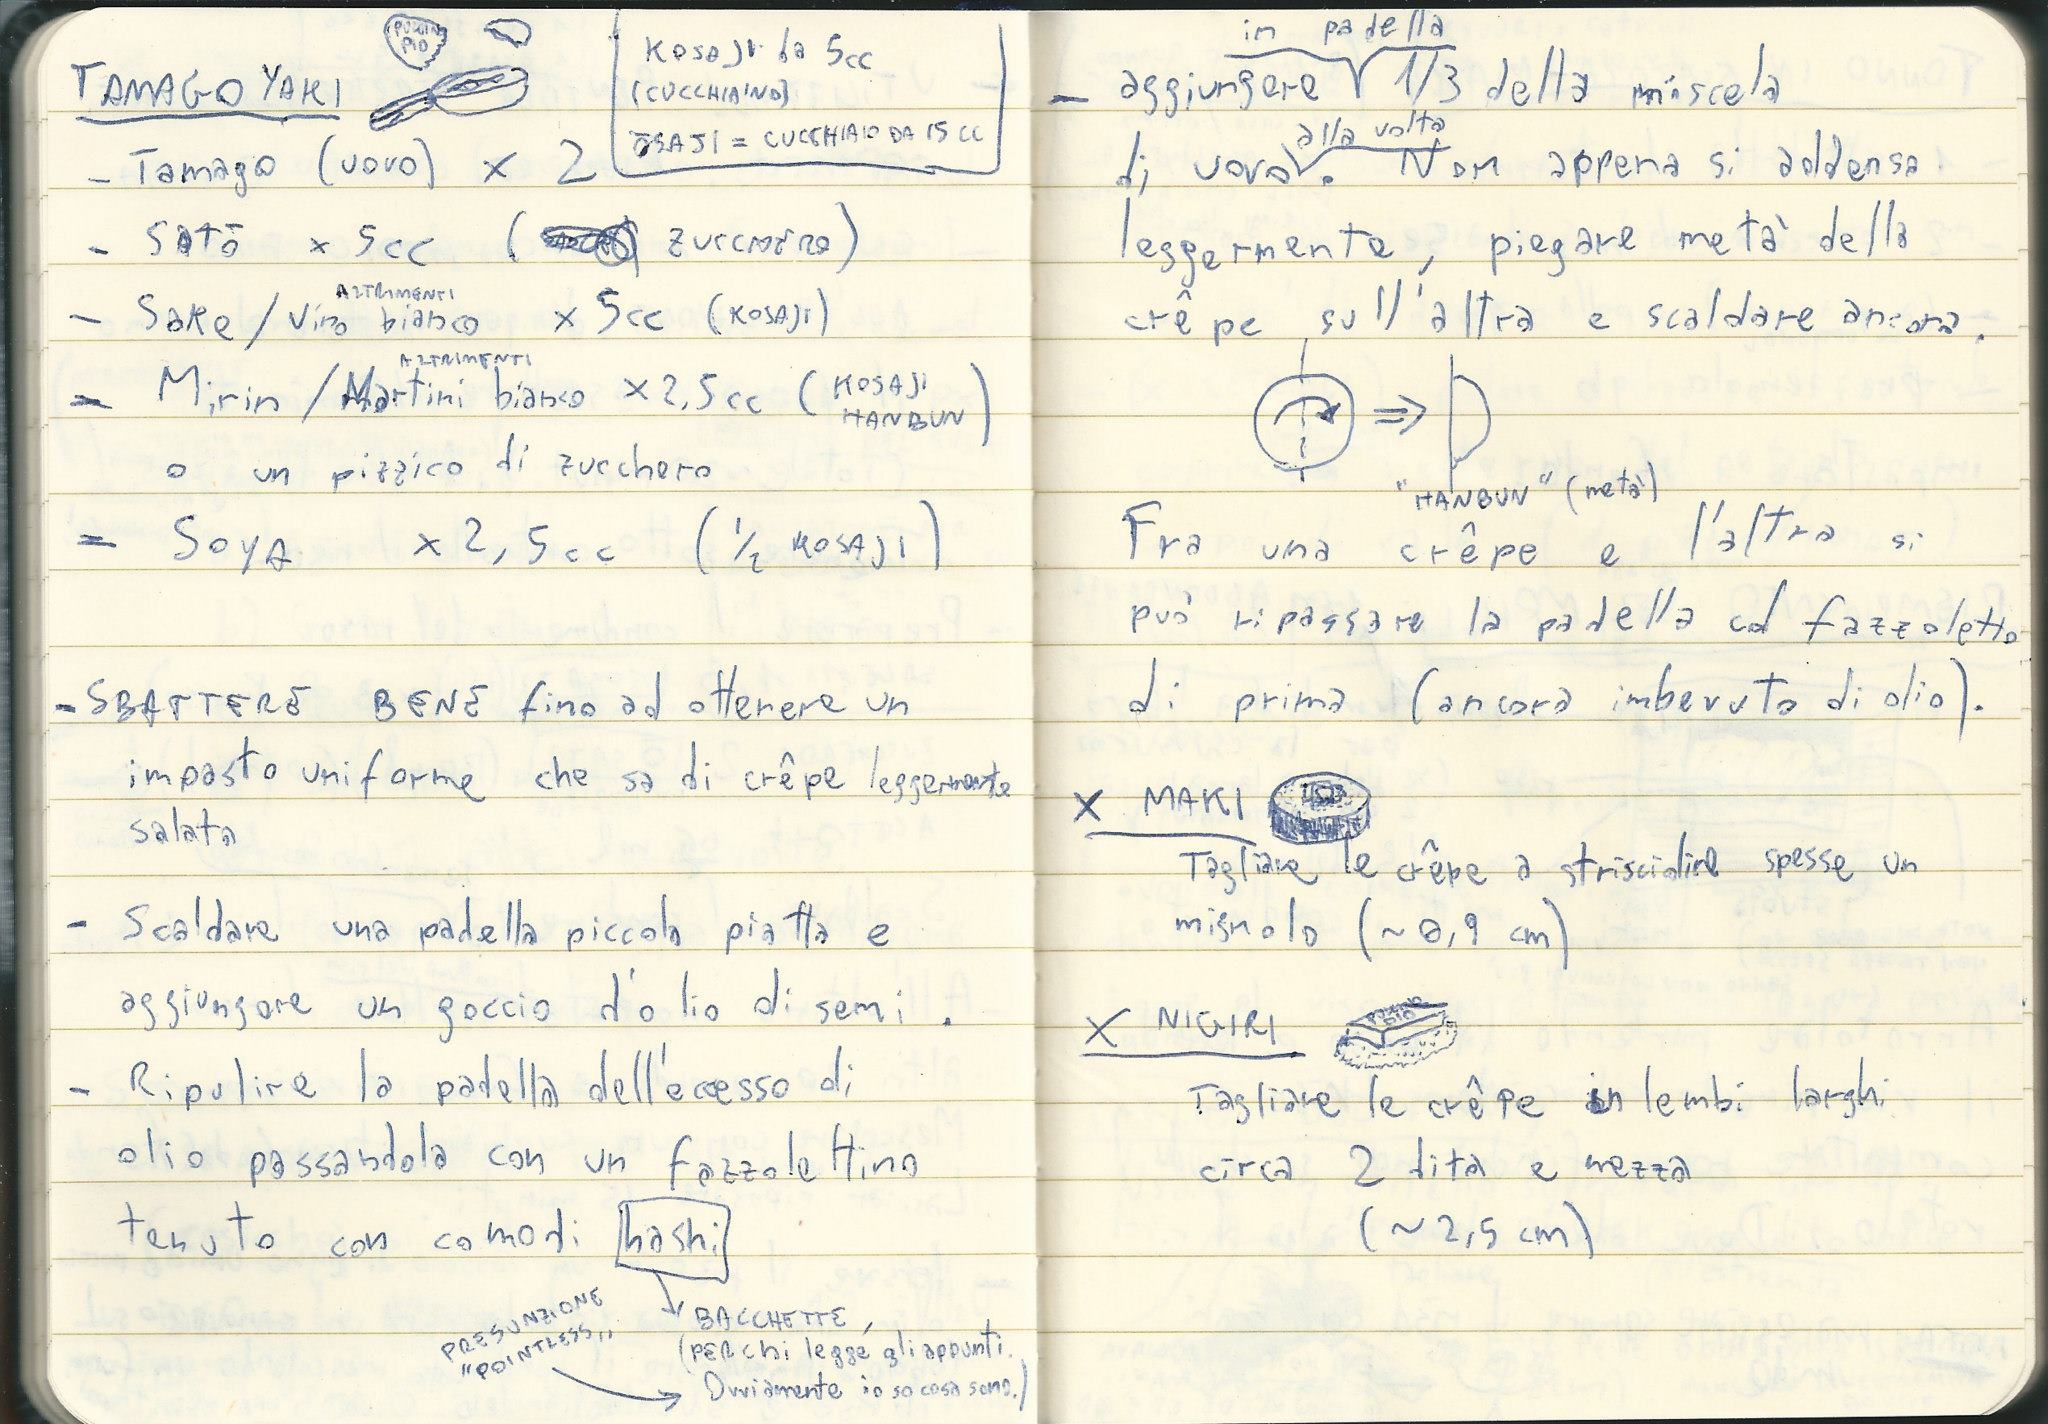 TAMAGO YAKI
KOSAJI da 5cc
(CUCCHIAINO)
ŌSAJI = CUCCHIAIO DA 15 CC
- Tamago (uovo) x 2
- Satō x 5cc ( zucchero)
- Sake / ALTRIMENTI vino bianco x 5cc (KOSAJI)
- Mirin / ALTRIMENTI Martini bianco x 2,5cc (KOSAJI HANBUN)
o un pizzico di zucchero
- SOYA x 2,5cc (1/2 KOSAJI)
- SBATTERE BENE fino ad ottenere un
impasto uniforme che sa di crêpe leggermente
salata
- Scaldare una padella piccola piatta e
aggiungere un goccio d'olio di semi.
- Ripulire la padella dell'eccesso di
olio passandola con un fazzolettino
tenuto con comodi hashi
BACCHETTE,
(PER chi legge gli appunti.
Ovviamente io so cosa sono.)
PRESUNZIONE
"POINTLESS"
in padella
- aggiungere 1/3 della miscela
alla volta
di uova. Non appena si addensa
leggermente, piegare metà della
crêpe sull'altra e scaldare ancora.
"HANBUN" (metà)
Fra una crêpe e l'altra si
può ripassare la padella col fazzoletto
di prima (ancora imbevuto di olio).
X MAKI
Tagliare le crêpe a striscioline spesse un
mignolo (~0,9 cm)
X NIGIRI
Tagliare le crêpe in lembi larghi
circa 2 dita e mezza
(~2,5 cm)